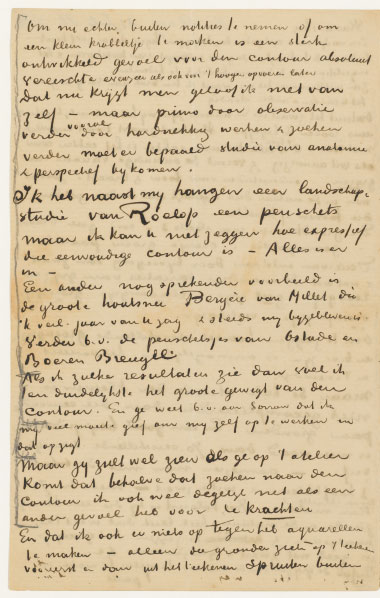 Om nu echter buiten notities te nemen of om
een klein krabbeltje te maken is een sterk
ontwikkeld gevoel voor den contour absoluut
vereischte evenzeer als ook voor 't hooger opvoeren later
Dat nu krijgt men geloof ik niet van
zelf – maar primo door observatie
verder vooral door hardnekkig werken & zoeken
verder moet er bepaald studie van anatomie
& perspectief bij komen.
Ik heb naast mij hangen een landschap-
studie van Roelofs een penschets
maar ik kan u niet zeggen hoe expressief
die eenvoudige contour is – Alles is er
in –
Een ander nog sprekender voorbeeld is
de groote houtsnee Bergère van Millet die
'k verl. jaar van u zag & steeds mij bijgebleven is
Verder b.v. de penschetsjes van Ostade en
Boeren Breughel.
Als ik zulke resultaten zie dan voel ik
ten duidelijkste het groote gewigt van den
contour. En ge weet b.v. aan Sorrow dat ik
mij veel moeite geef om mij zelf op te werken in
dat opzigt
Maar gij zult wel zien als ge op 't atelier
komt dat behalve dat zoeken naar den
contour ik ook wel degelijk net als een
ander gevoel heb voor de krachten
En dat ik ook er niets op tegen heb aquarellen
te maken – alleen die gronden zich op 't teekenen
voorerst en dan uit het teekenen spruiten buiten